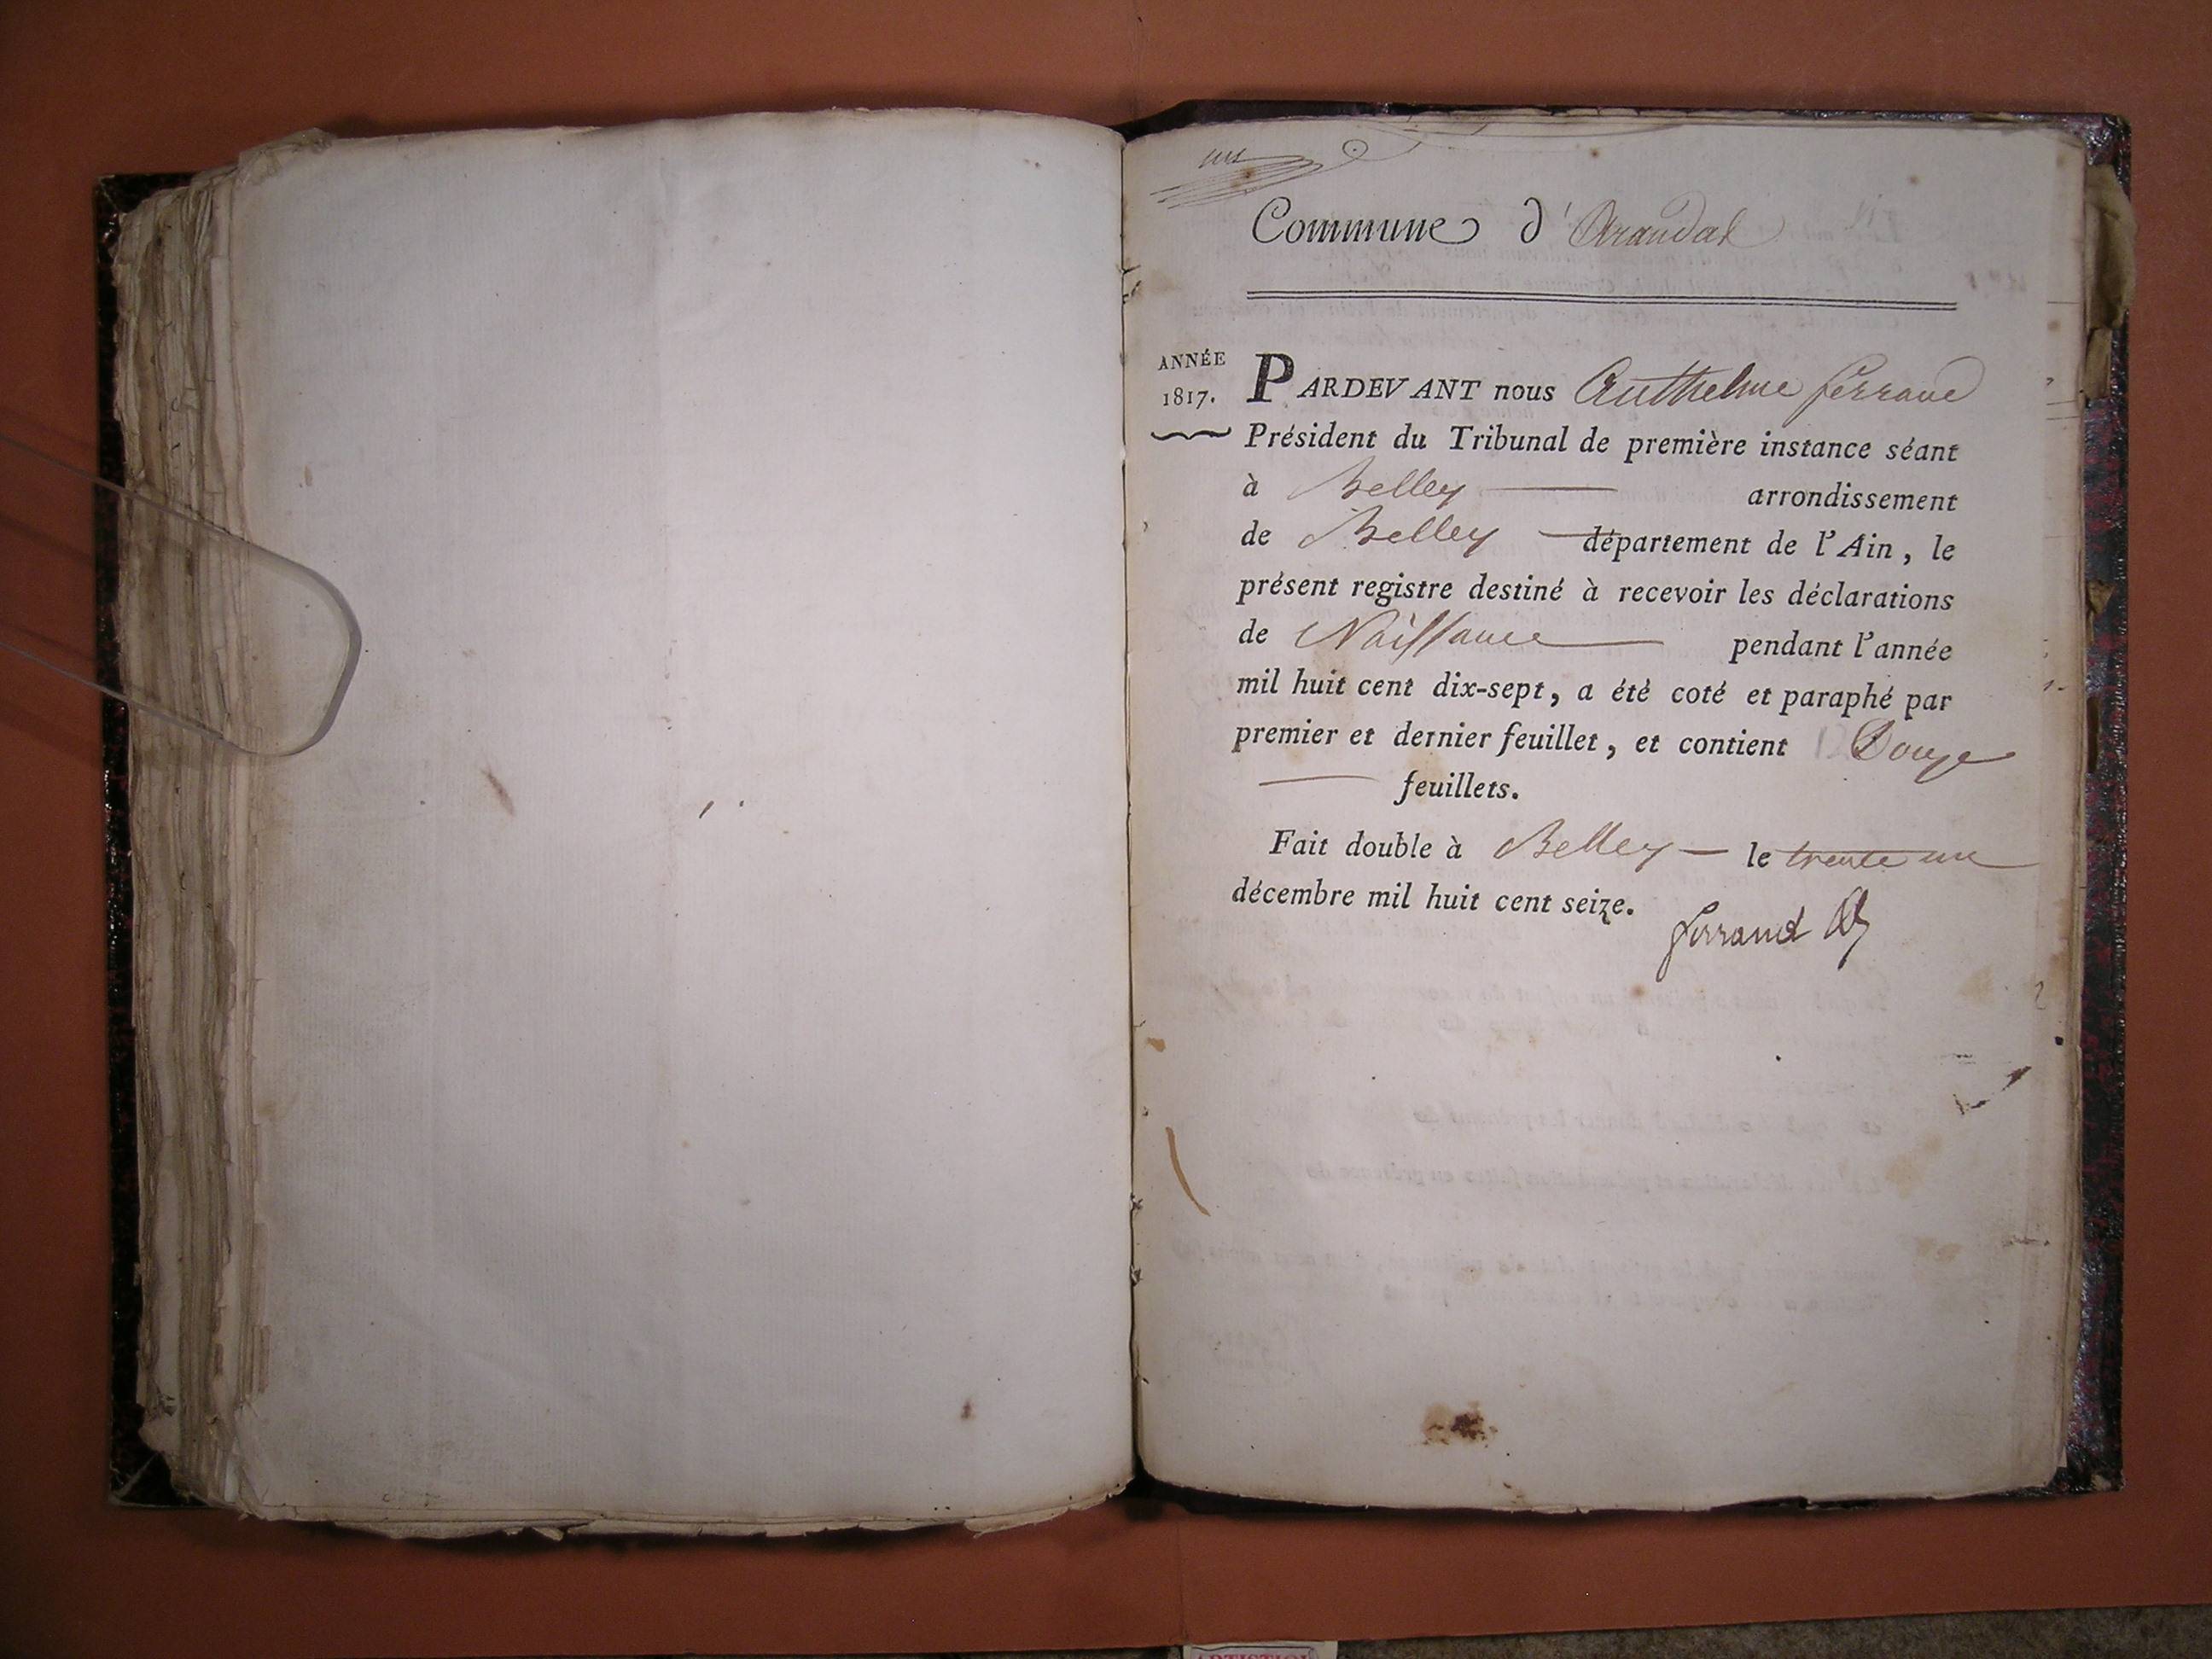 un
Commune d'Arandas
ANNÉE
1817.
PARDEVANT nous Anthelme ferrand
Président du Tribunal de première instance séant
à Belley arrondissement
de Belley département de l'Ain, le
présent registre destiné à recevoir les déclarations
de Naissance pendant l'année
mil huit cent dix-sept, a été coté et paraphé par
premier et dernier feuillet, et contient Douze
feuillets.
Fait double à Belley le trente un
décembre mil huit cent seize.
ferrand